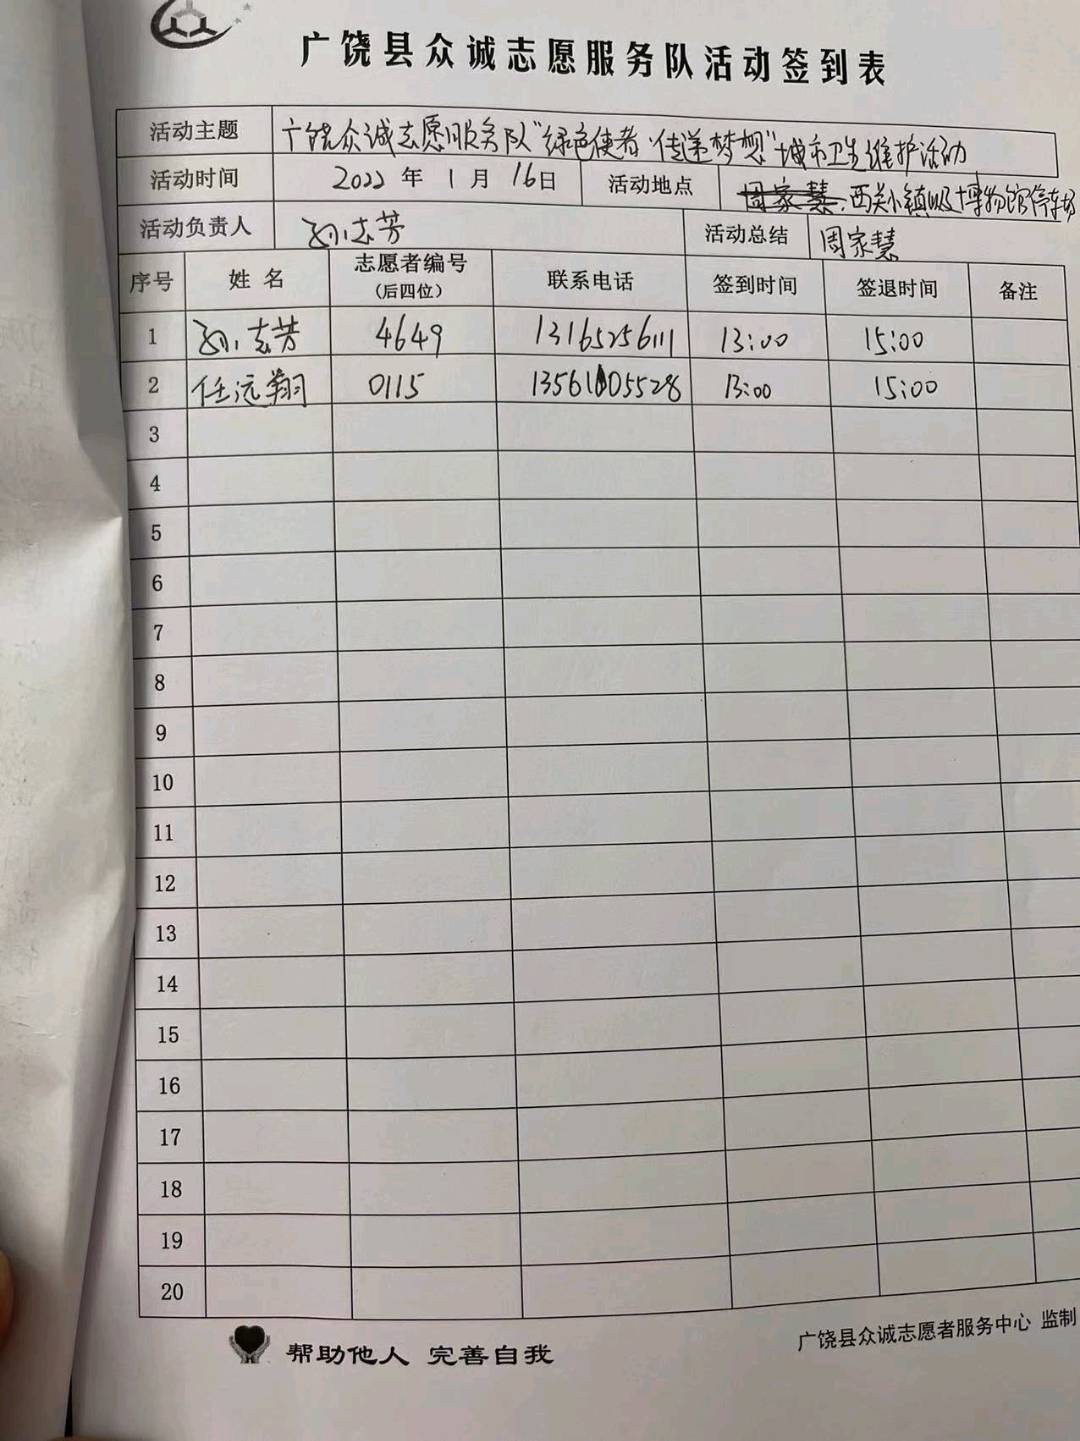 广饶县众诚志愿服务队活动签到表
活动主题 广饶众诚志愿服务队“绿色使者 传递梦想”城市卫生维护活动
活动时间 2022 年 1 月 16日 活动地点 周家慧 西关小镇 博物馆停车场
活动负责人 孙志芳 活动总结 周家慧
序号 姓 名 志愿者编号 (后四位) 联系电话 签到时间 签退时间 备注
1 孙志芳 4649 13165256111 13:00 15:00
2 任远翔 0115 13561005528 13:00 15:00
3
4
5
6
7
8
9
10
11
12
13
14
15
16
17
18
19
20
帮助他人 完善自我
广饶县众诚志愿者服务中心 监制